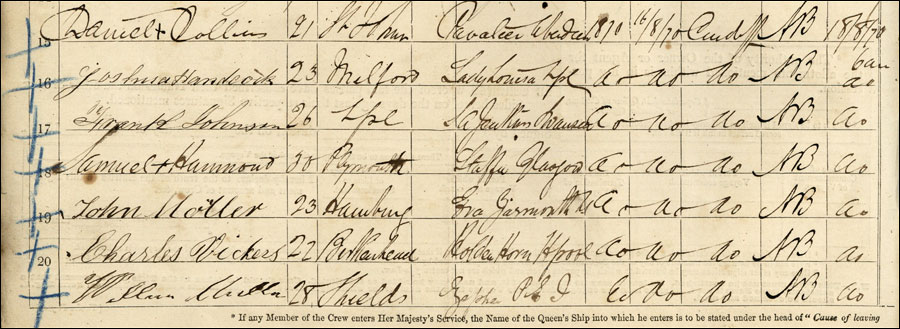 15 Daniel + Collins 21 St Johns Cavalier Aberdeen 1870 16/8/70 Cardiff AB 18/8/70
6 am
16 Joshua Handcock 23 Milford Lady Louisa Lpl do do do AB do
17 Frank Johnson 26 Lpl Swansea do do do AB do
18 Samuel + Hammond 30 Plymouth Staffa Glasgow do do do AB do
19 John Möller 23 Hamburg do do do AB do
20 Charles Vickers 22 Birkenhead Golden Horn Lpool do do do AB do
William 28 Shields do do do AB do
* If any Member of the Crew enters Her Majesty's Service, the Name of the Queen's Ship into which he enters is to be stated under the head of "Cause of leaving